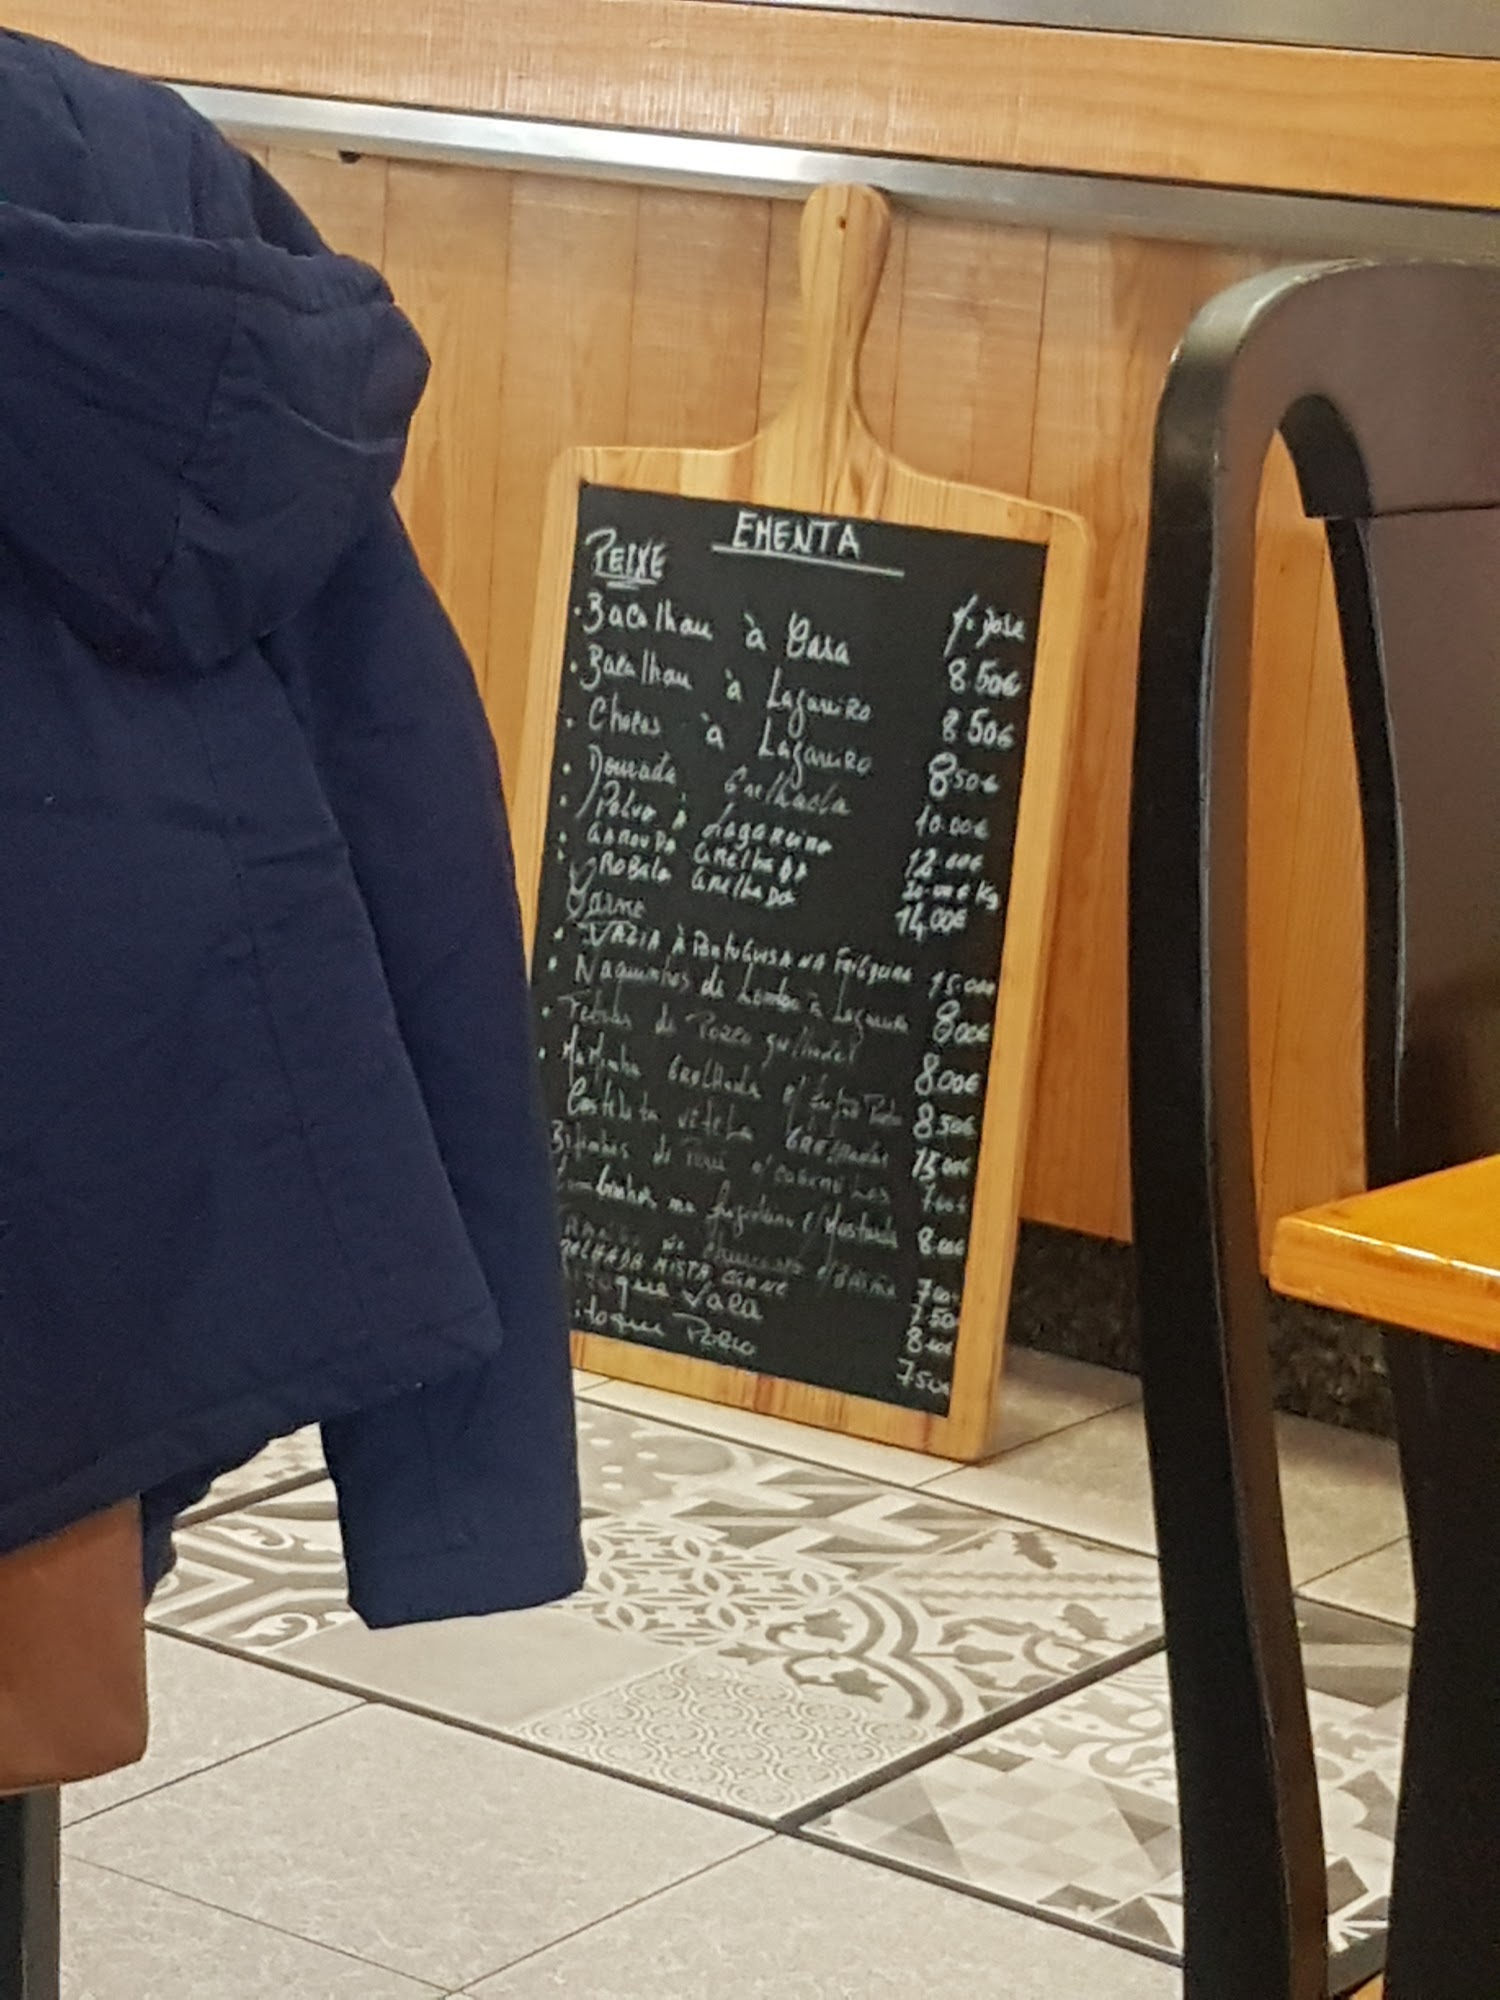 EMENTA
PEIXE
½ Dose
• Bacalhau à Casa 8.50€
• Bacalhau à Lagareiro 8.50€
• Chocos à Lagareiro 8.50€
• Dourada Grelhada 10.00€
• Polvo à Lagareiro 12.00€
• GAROUPA GRELHADA 20.00€ Kg
• ROBALO GRELHADO 14.00€
Carne
• VAZIA À PORTUGUESA NA FRIGIDEIRA 15.00€
• Naquinhos de Lombo à Lagareiro 8.00€
• de Porco grelhados 8.00€
• Maminha GRELHADA c/ Preto 8.50€
Costeleta vitela GRELHADA 15.00€
Bifinhos de Peru c/ COGUMELOS 7.00€
Lombinhos na frigideira c/ Mostarda 8.00€
7.00
GRELHADA MISTA CARNE 7.50
itoque Vaca 8.00€
itoque Porco 7.50€